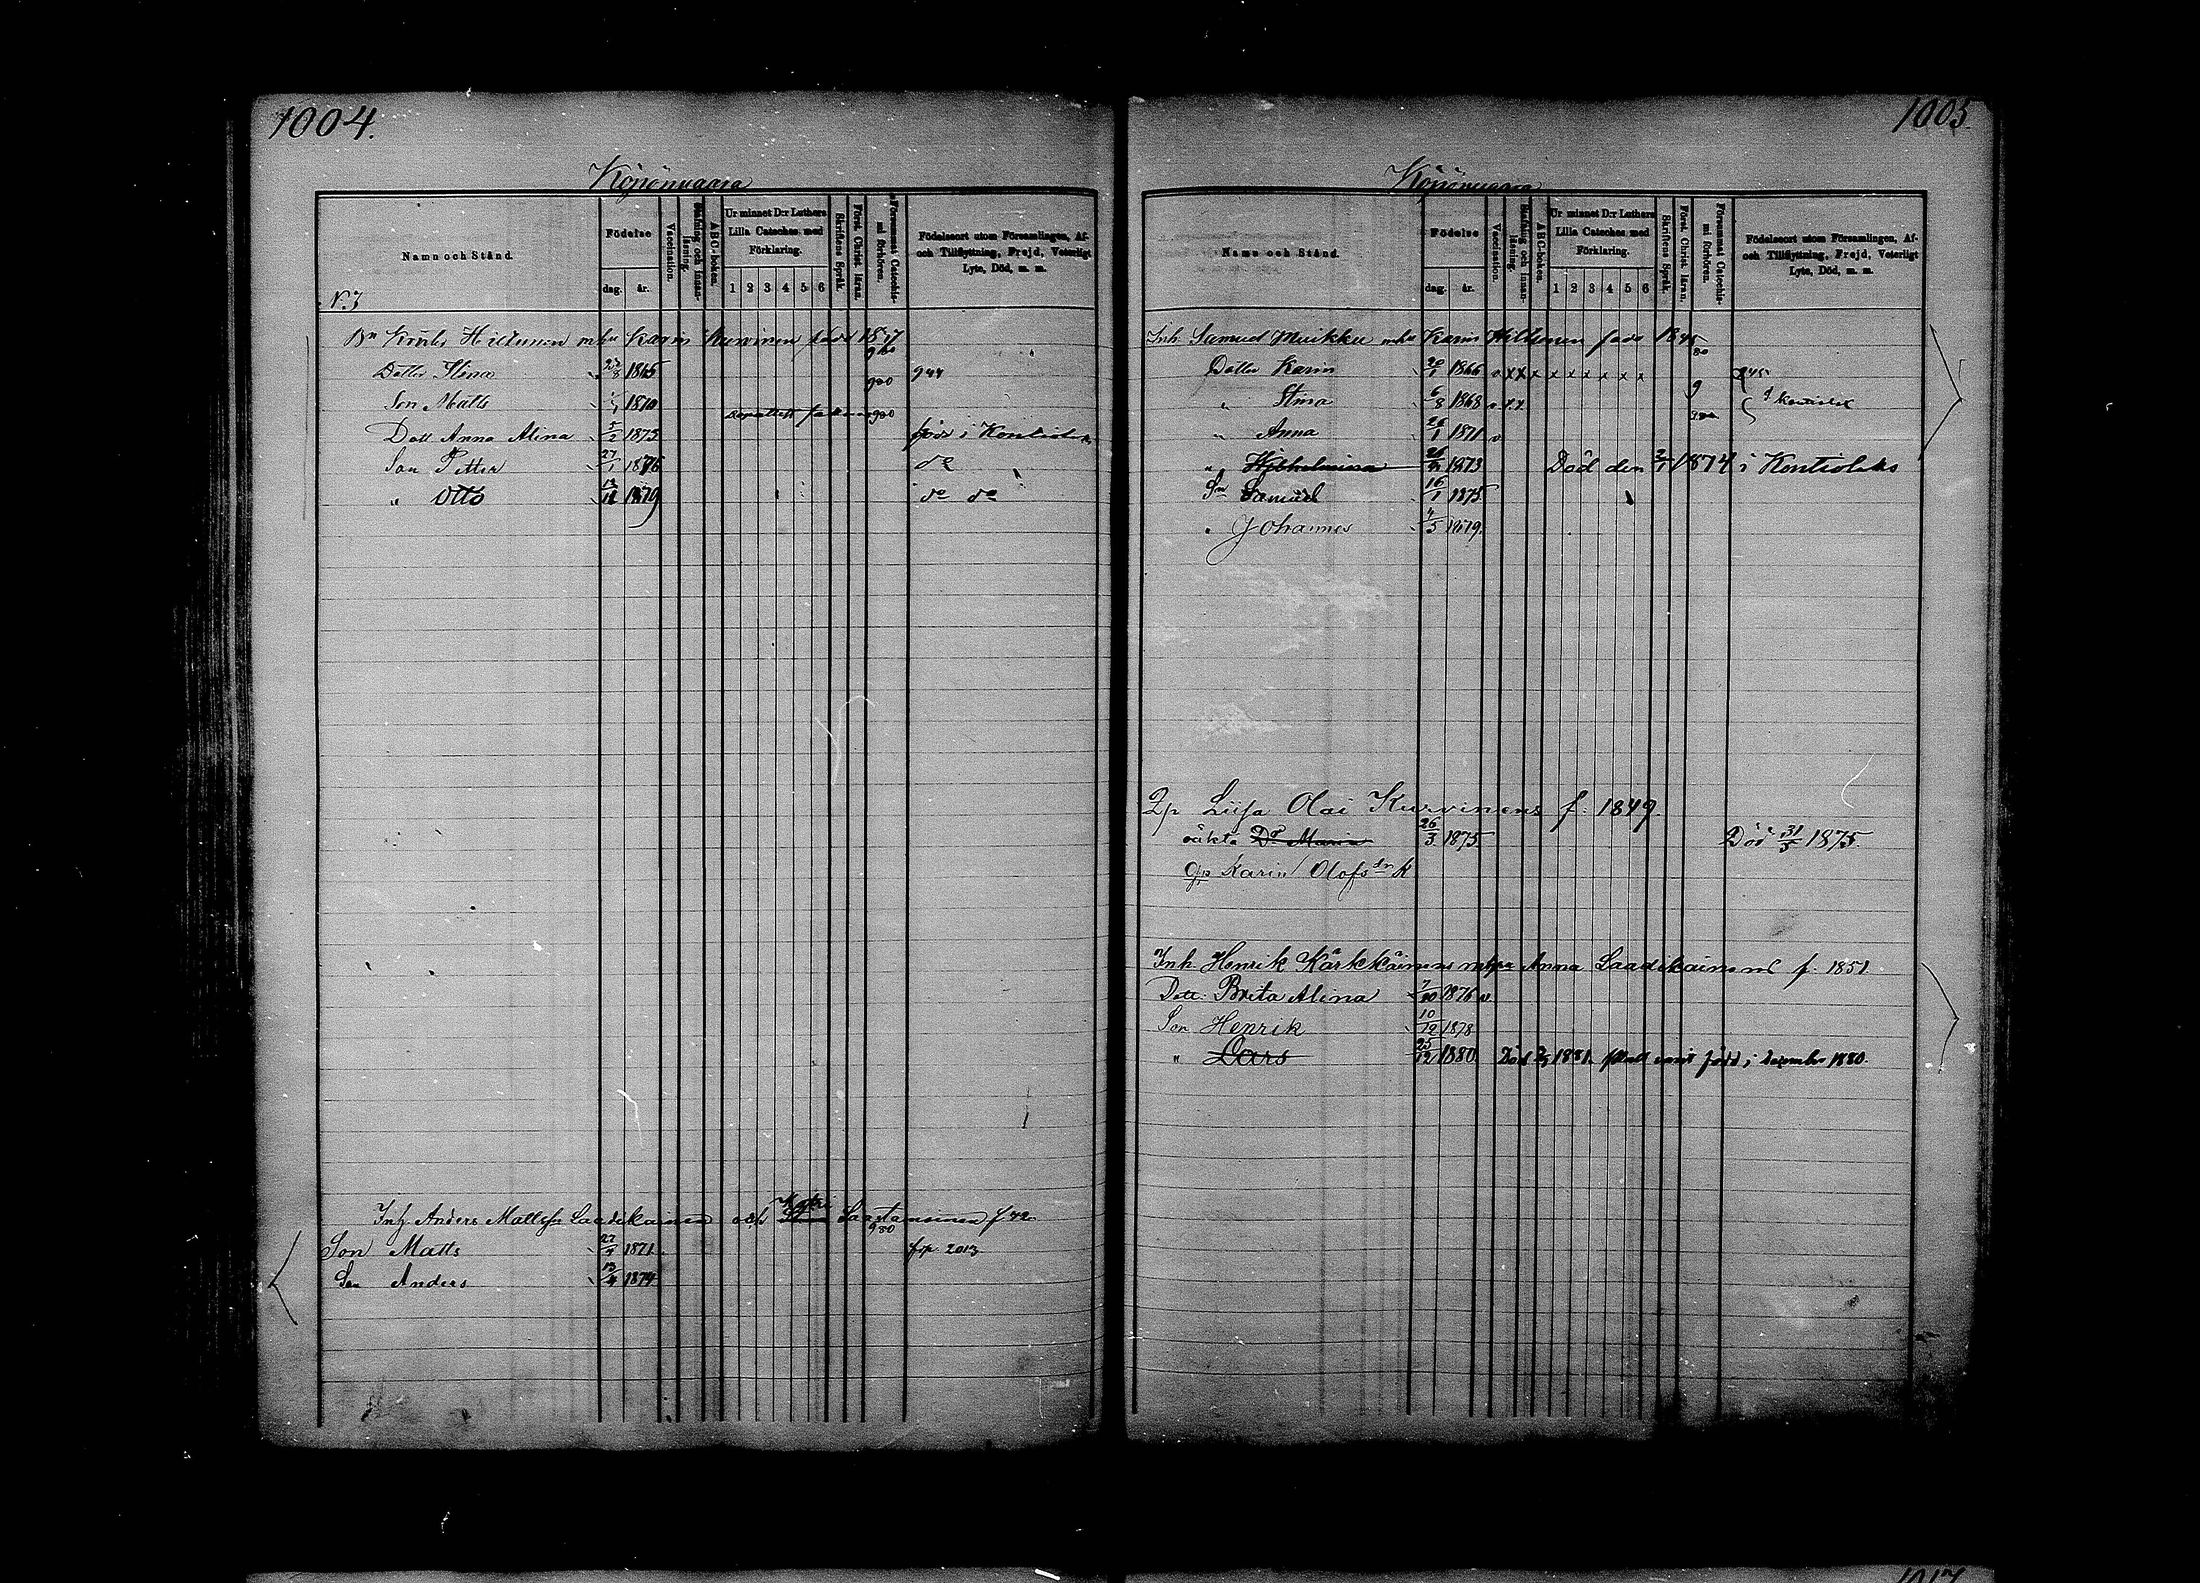 1004.
Köyönvaara
Namn och Stånd.
Födelse
dag. år.
Vaccination.
läsning.
ABC-boken.
Ur minnet D:r Luthers
Lilla Cateches. med
Förklaring.
1 2 3 4 5 6
Skriftens Språk.
Först. Christ. läran.
Försummat Catechis-
mi förhören.
Födelseort utom Församlingen, Af-
och Tillflyttning, Frejd, Veterligt
Lyte, Död, m. m.
N. 7
Hiltunen Karin Kurvinen född
Dotter Stina 1865 900 944
Son Matts 1870 900
Dott Anna Alina 5/2 1873 född i Kontiolax
Son Petter 27/1 1876 do
" Otto 1879 do do
Inh. Anders Mattss. Laadikainen och Katri Saastamoinen f 42
980
Son Matts 27/4 1871 2013
Son Anders 13/4 1874
1005.
Köyönvaara
Namn och Stånd.
Födelse
dag. år.
Vaccination.
läsning.
ABC-boken.
Ur minnet D:r Luthers
Lilla Cateches. med
Förklaring.
1 2 3 4 5 6
Skriftens Språk.
Först. Christ. läran.
Försummat Catechis-
mi förhören.
Födelseort utom Församlingen, Af-
och Tillflyttning, Frejd, Veterligt
Lyte, Död, m. m.
Inh. Samuel Muikku Karin Hiltunen
Dotter Karin 20/1 1866 v x x x x x x x x x
" Stina 6/8 1868 v x x
" Anna 1871 v
" Wilhelmina 1873 Död den 2/1 1874 i Kontiolaks
Sn Samuel 16/1 1875
" Johannes 4/5 1879.
Liisa Olai Kurvinens f. 1849.
oäkta Dr Maria 26/3 1875 Död 31/3 1875.
Karin Olofs dr K
Inh. Henrik Kärkkäinens Anna Laadikainens f. 1851
Dott. Brita Alina 7/10 1876 v
Son Henrik 10/12 1878
" Lars 25/12 1880 Död 1881. född i december 1880.
1017